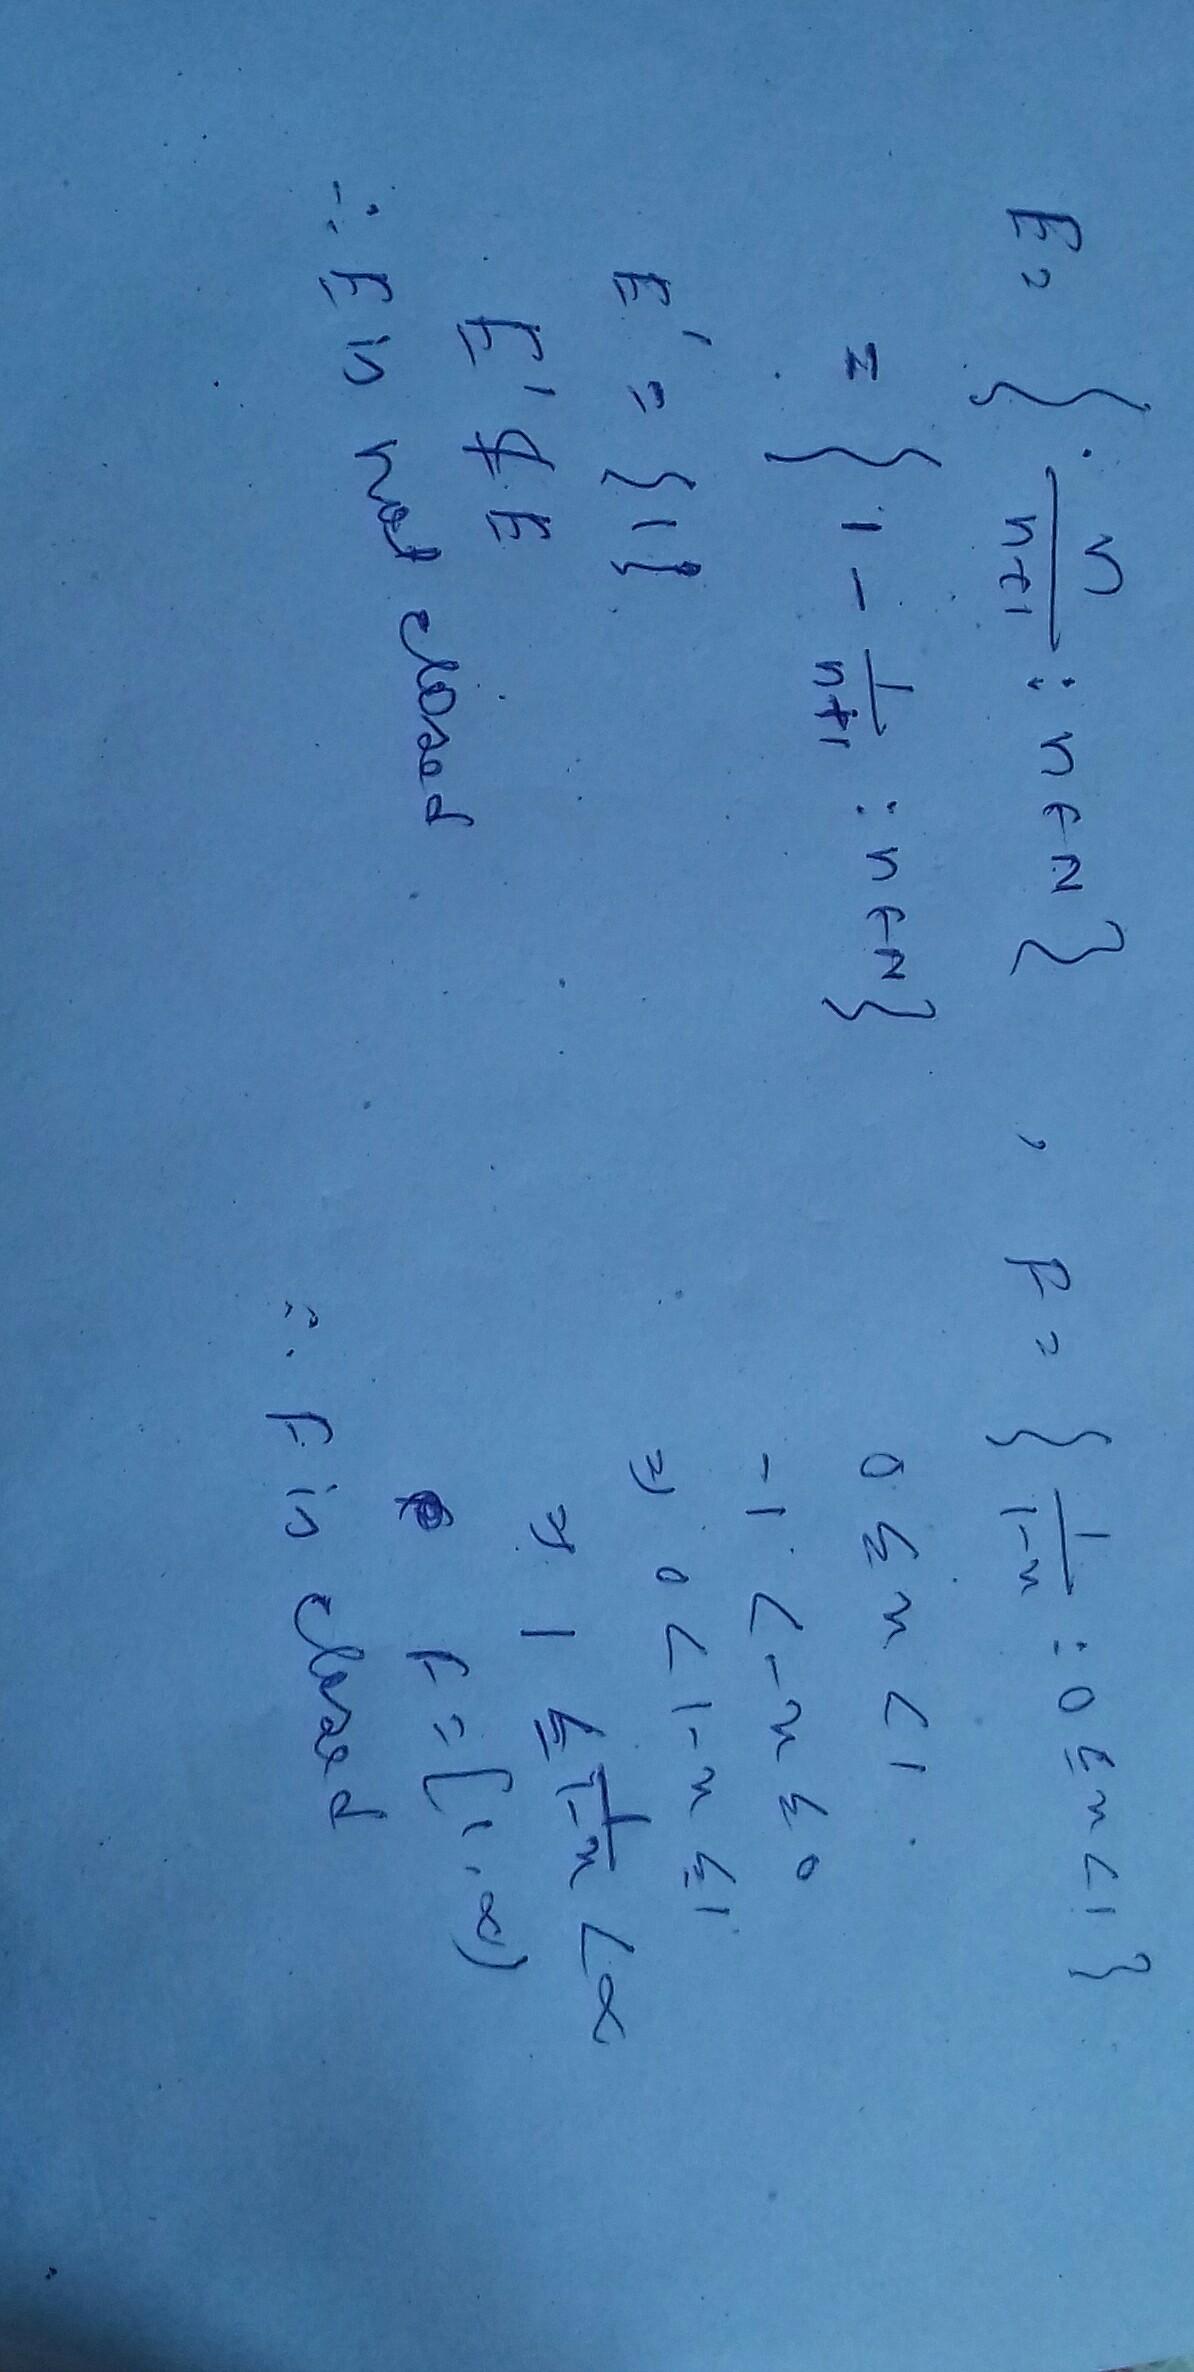 E = { n/(n+1) : n ∈ N } , F = { 1/(1-x) : 0 ≤ x < 1 }
= { 1 - 1/(n+1) : n ∈ N }
E' = {1}
E' ⊄ E
∴ E is not closed
0 ≤ x < 1
-1 < -x ≤ 0
⇒ 0 < 1-x ≤ 1
⇒ 1 ≤ 1/(1-x) < ∞
F = [1, ∞)
∴ F is closed